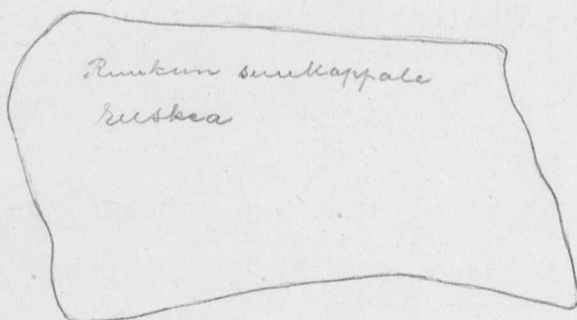 Ruukun suukappale
Ruskea